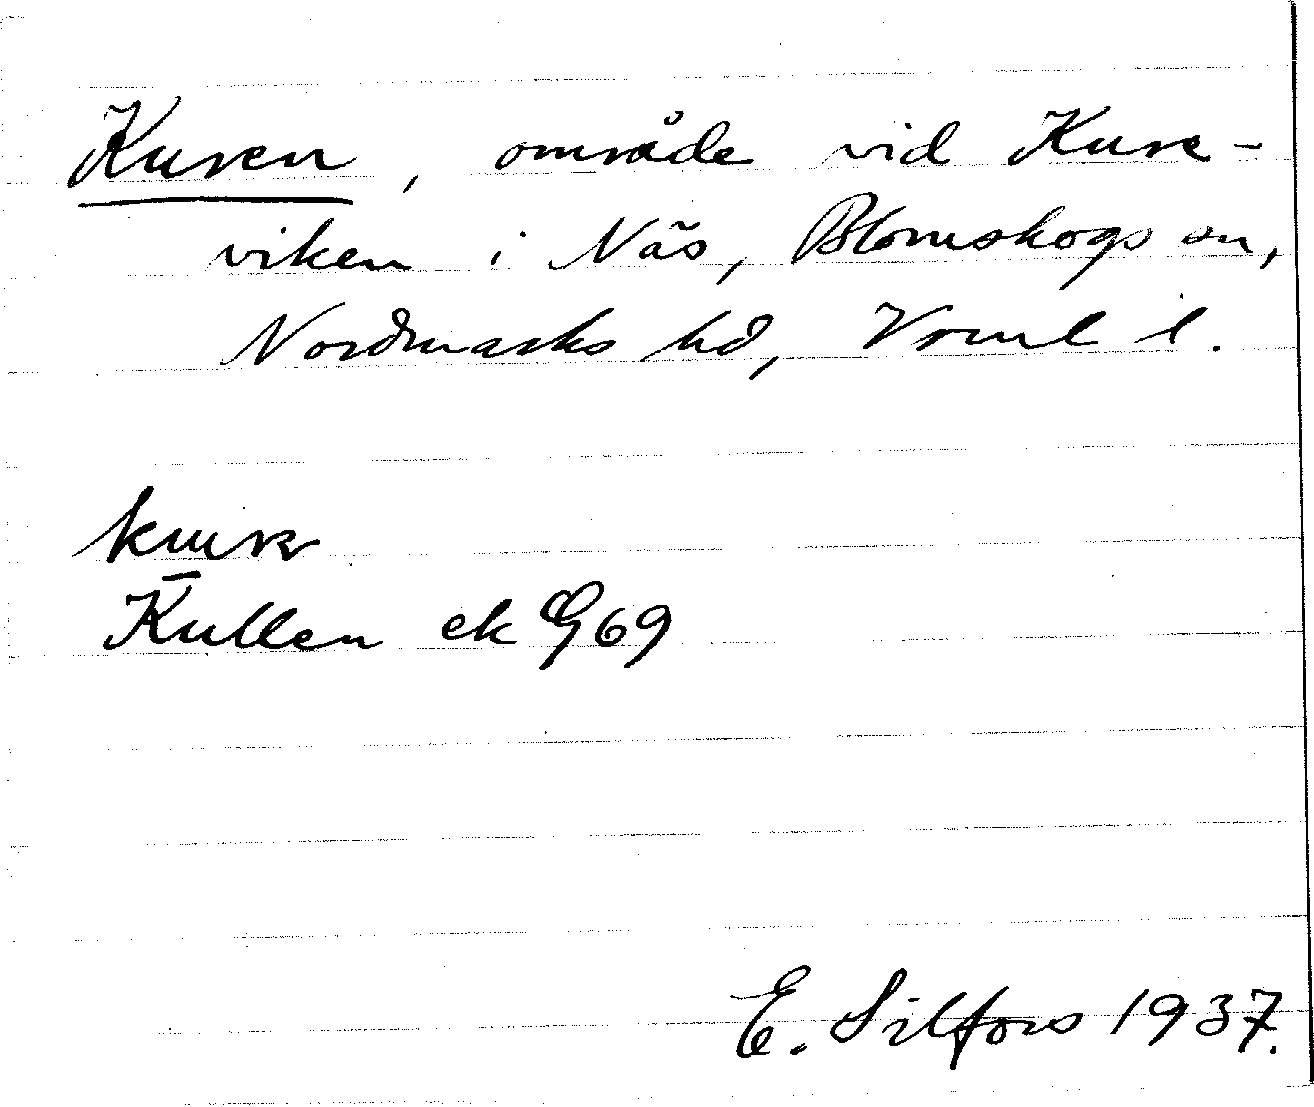 Kuren, område vid Kure-
viken i Näs, Blomskogs sn,
Nordmarks hd, Vrml l.
Kullen ek G69
E. Silfors 1937.